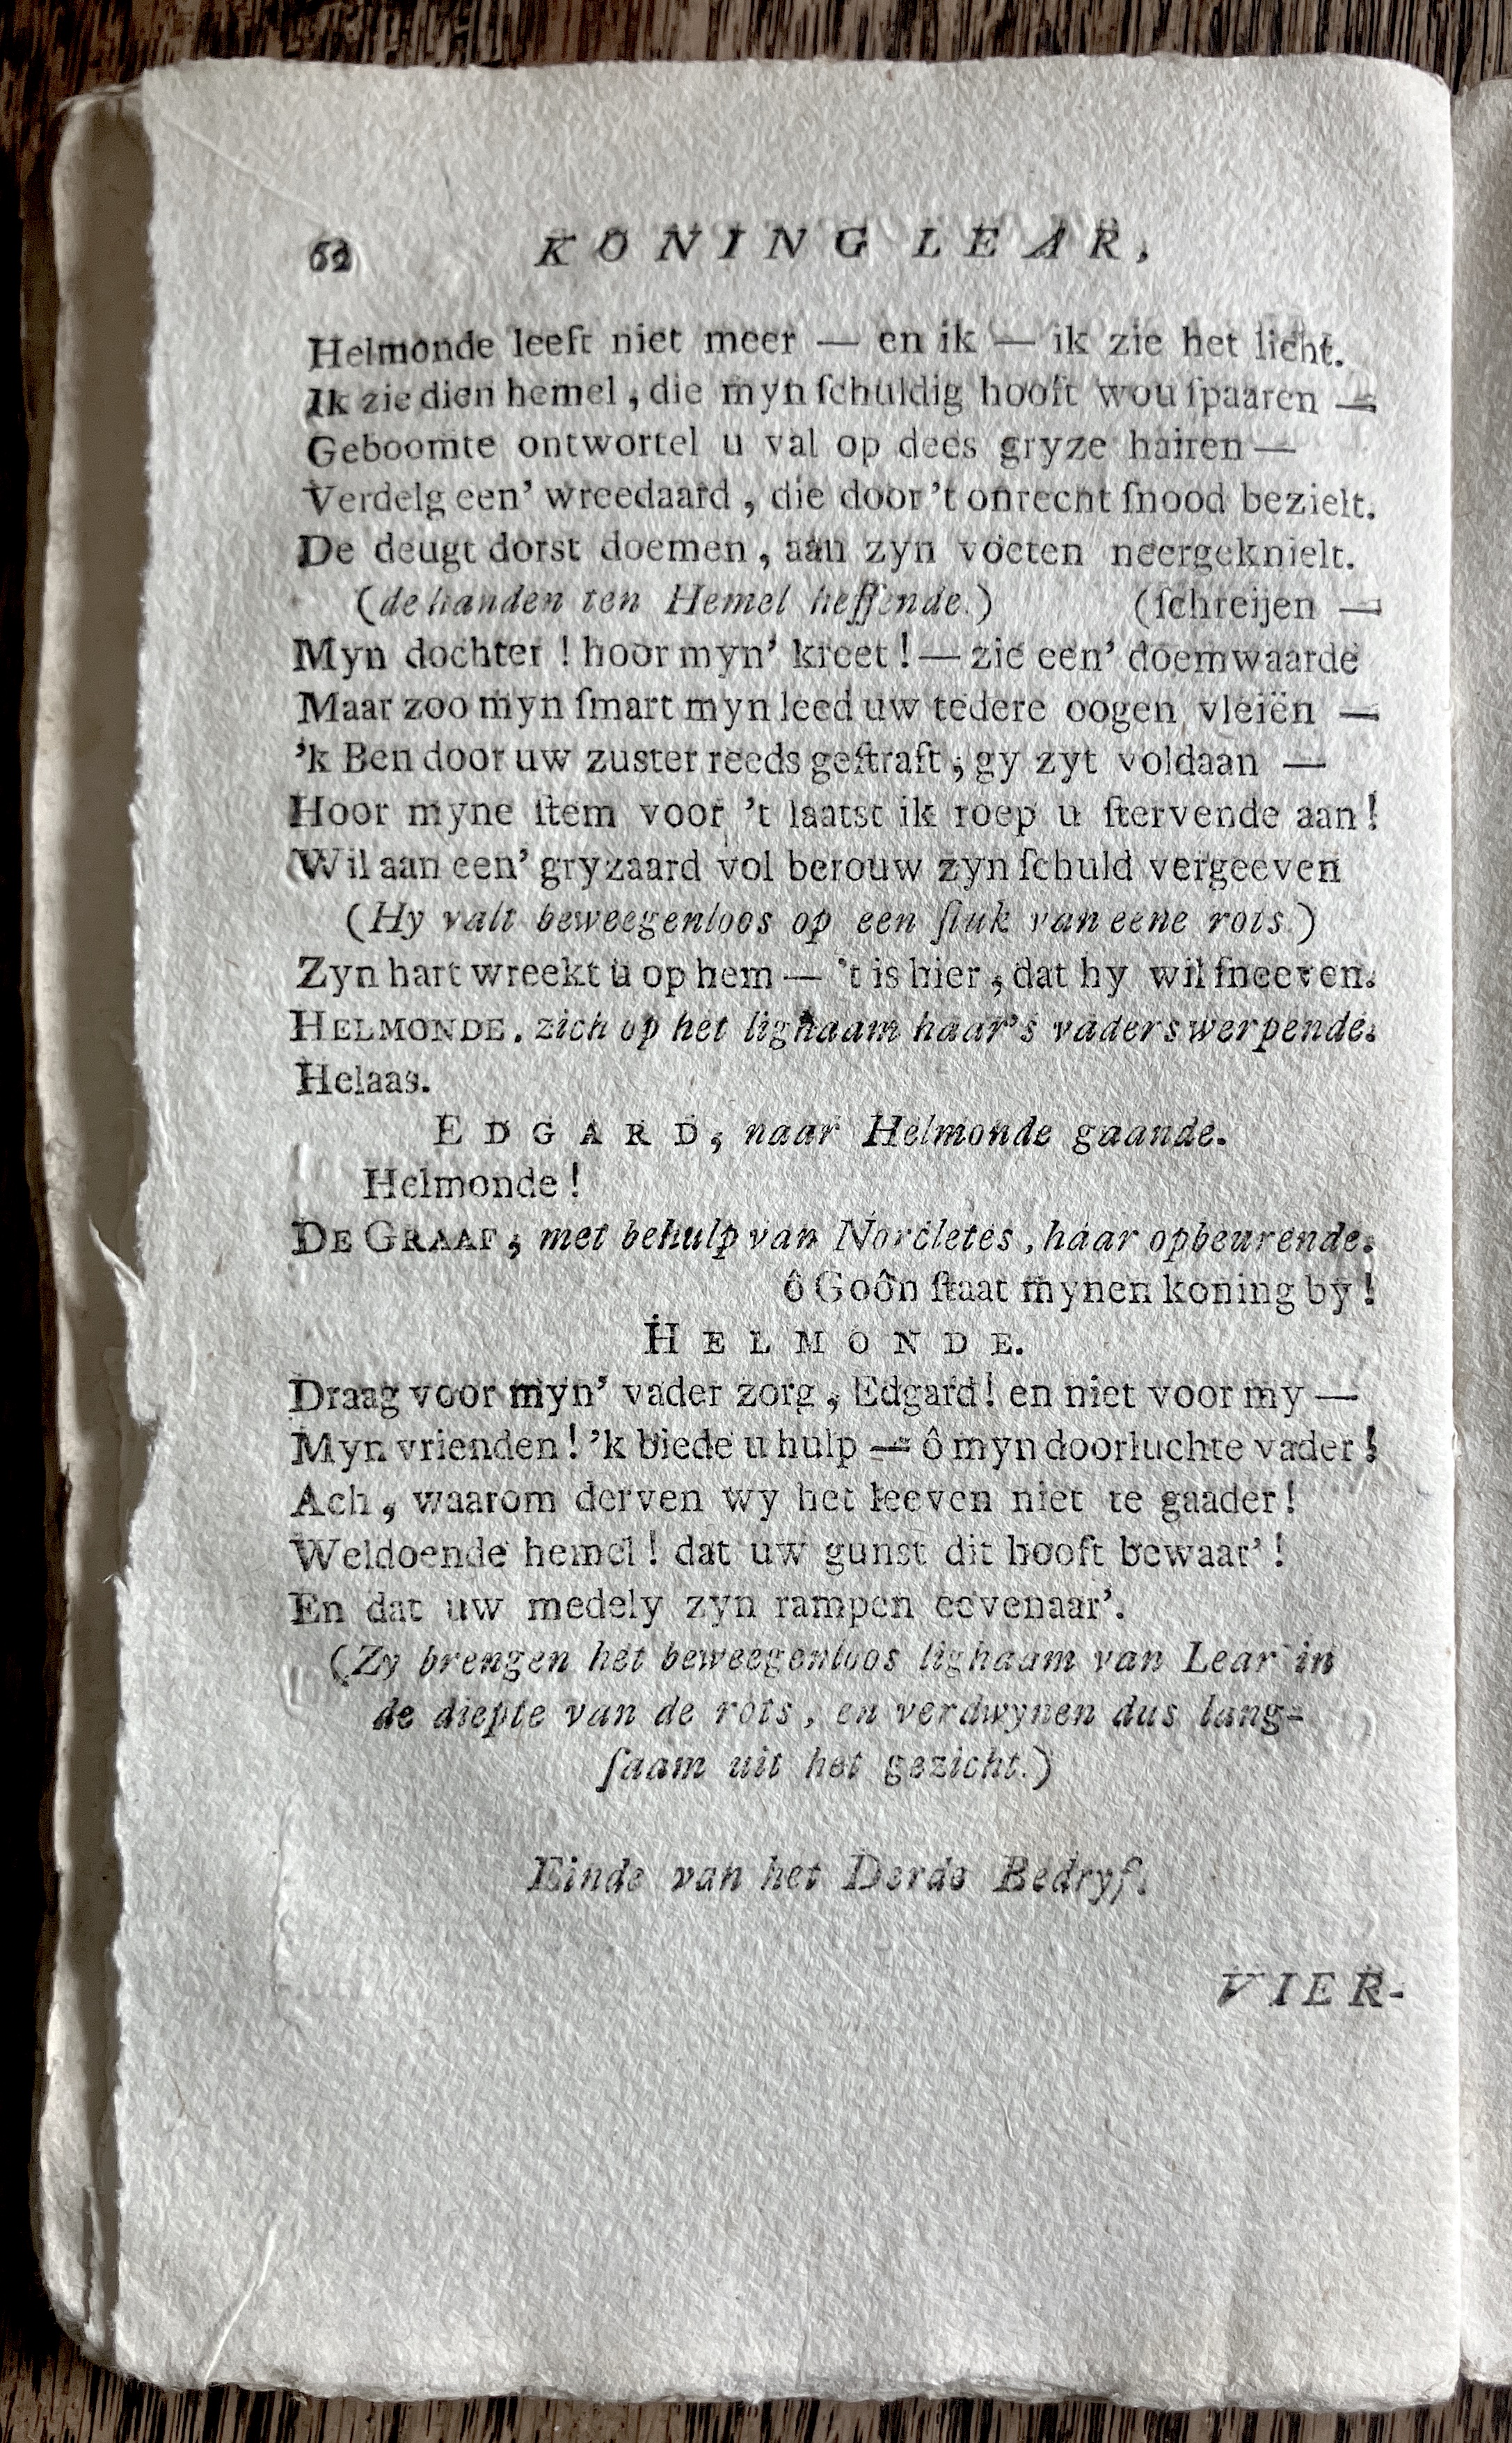 62 KONING LEAR,
Helmonde leeft niet meer — en ik — ik zie het licht.
Ik zie dien hemel, die myn ſchuldig hooft wou ſpaaren —
Geboomte ontwortel u val op dees gryze hairen —
Verdelg een' wreedaard, die door 't onrecht ſnood bezielt.
De deugt dorst doemen, aan zyn voeten neergeknielt.
(de handen ten Hemel heffende.) (ſchreijen —
Myn dochter! hoor myn' kreet! — zie een' doemwaarde
Maar zoo myn ſmart myn leed uw tedere oogen vleiën —
'k Ben door uw zuster reeds geſtraft, gy zyt voldaan —
Hoor myne ſtem voor 't laatst ik roep u ſtervende aan!
Wil aan een' gryzaard vol berouw zyn ſchuld vergeeven
(Hy valt beweegenloos op een ſtuk van eene rots.)
Zyn hart wreekt u op hem — 't is hier, dat hy wil ſneeven.
HELMONDE, zich op het lighaam haar's vaders werpende.
Helaas.
EDGARD, naar Helmonde gaande.
Helmonde!
DE GRAAF, met behulp van Norcletes, haar opbeurende.
ô Goôn ſtaat mynen koning by!
HELMONDE.
Draag voor myn' vader zorg, Edgard! en niet voor my —
Myn vrienden! 'k biede u hulp — ô myn doorluchte vader!
Ach, waarom derven wy het leeven niet te gaader!
Weldoende hemel! dat uw gunst dit hooft bewaar'!
En dat uw medely zyn rampen eevenaar'.
(Zy brengen het beweegenloos lighaam van Lear in
de diepte van de rots, en verdwynen dus lang-
ſaam uit het gezicht.)
Einde van het Derde Bedryf.
VIER-